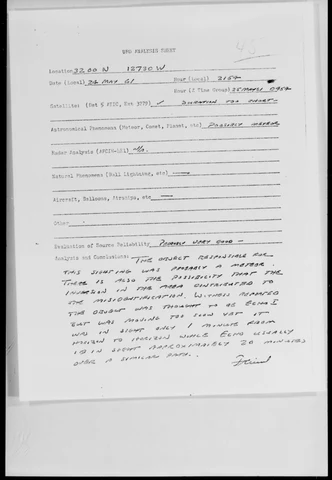 43
UFO ANALYSIS SHEET
Location 32.00 N 127 30 W
Date (Local) 24 MAY 61 Hour (Local) 2154
Hour (Z Time Group) 25 0754
Satellite: (Det 5 AFSC, Ext 3778) ✓ DURATION TOO SHORT
Astronomical Phenomena (Meteor, Comet, Planet, etc) PROBABLY METEOR
Radar Analysis (AFCIN-4E1) N/A
Natural Phenomena (Ball Lightning, etc) —
Aircraft, Balloons, Airships, etc —
Other
Evaluation of Source Reliability PROBABLY VERY GOOD -
Analysis and Conclusions: THE OBJECT RESPONSIBLE FOR
THIS SIGHTING WAS PROBABLY A METEOR.
THERE IS ALSO THE POSSIBILITY THAT THE
INVERSION IN THE AREA CONTRIBUTED TO
THE MISIDENTIFICATION. WITNESS REPORTED
THE OBJECT WAS THOUGHT TO BE ECHO I
BUT WAS MOVING TOO SLOW YET IT
WAS IN SIGHT ONLY 1 MINUTE FROM
HORIZON TO HORIZON WHILE ECHO USUALLY
IS IN SIGHT APPROXIMATELY 20 MINUTES
OVER A SIMILAR PATH.